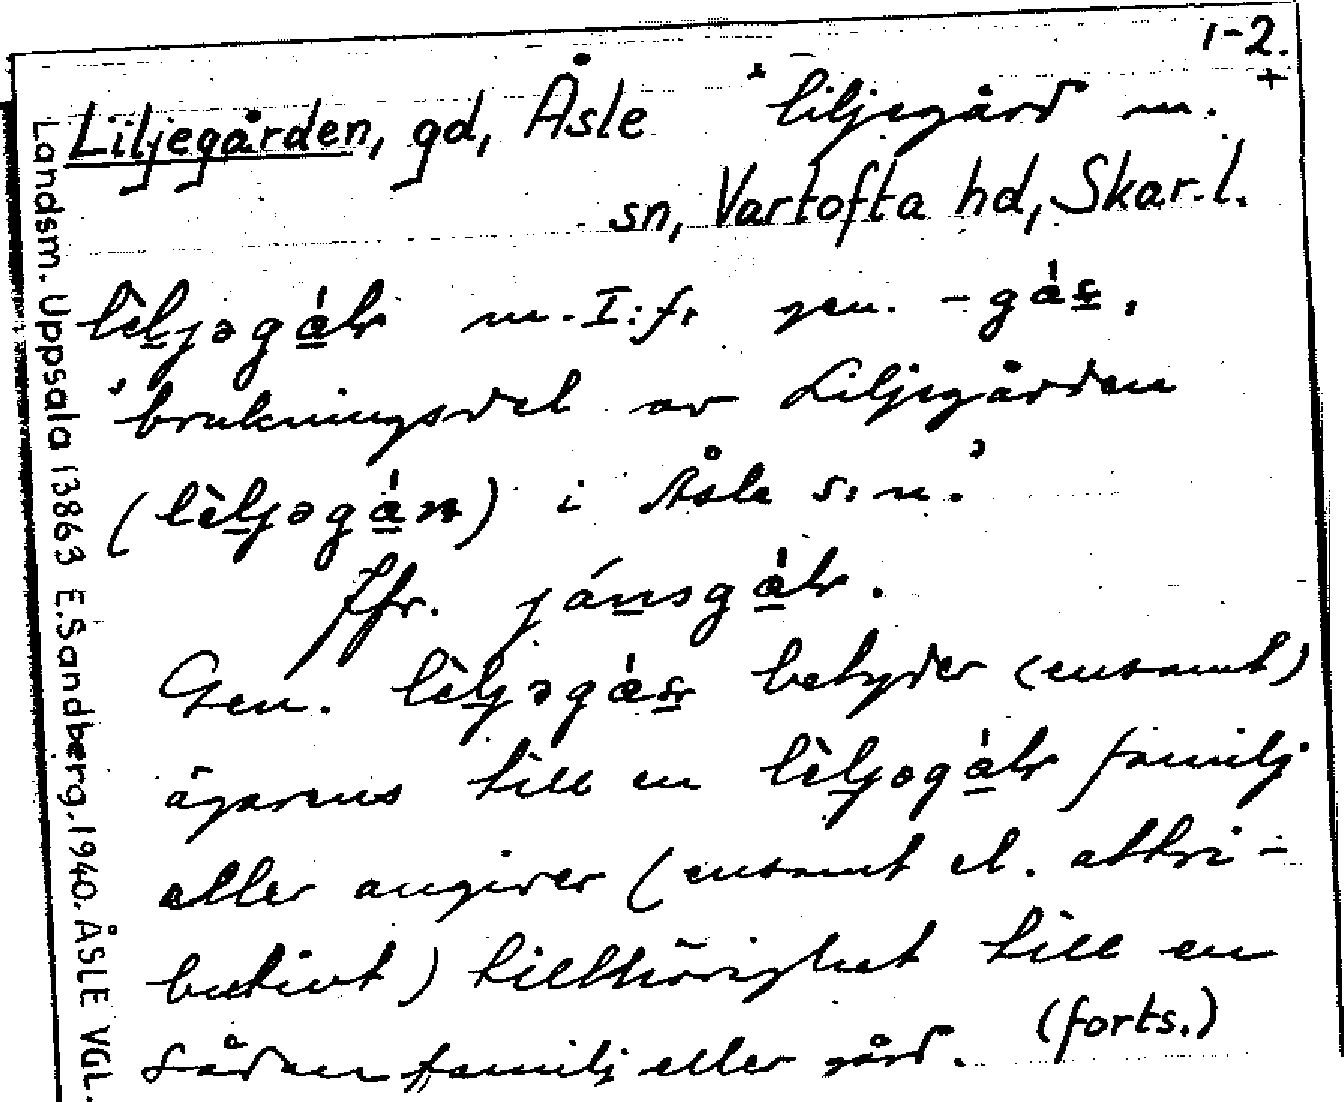 1-2.
+
Liljegården, gd, Åsle *liljegård m.
sn, Vartofta hd, Skar. l.
lèljəgáłr m. I:f, gen. -gás,
'brukningsdel av Liljegården
(lèljəgán) i Åsle s:n.'
Jfr. jánsgáłr.
Gen. lèljəgás betyder (ensamt)
ägarens till en lèljəgáłr familj
eller angiver (ensamt el. attri-
butivt) tillhörighet till en
sådan familj eller gård. (forts.)
Landsm. Uppsala 13863 E.Sandberg. 1940. ÅSLE VGL.